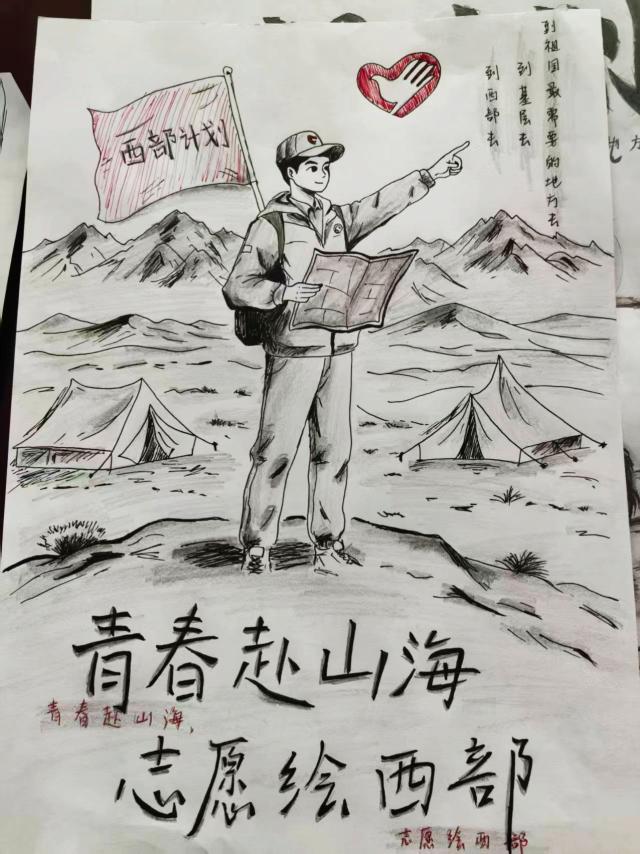 西部计划
到祖国最需要的地方去
到基层去
到西部去
青春赴山海
青春赴山海,
志愿绘西部
志愿绘西部